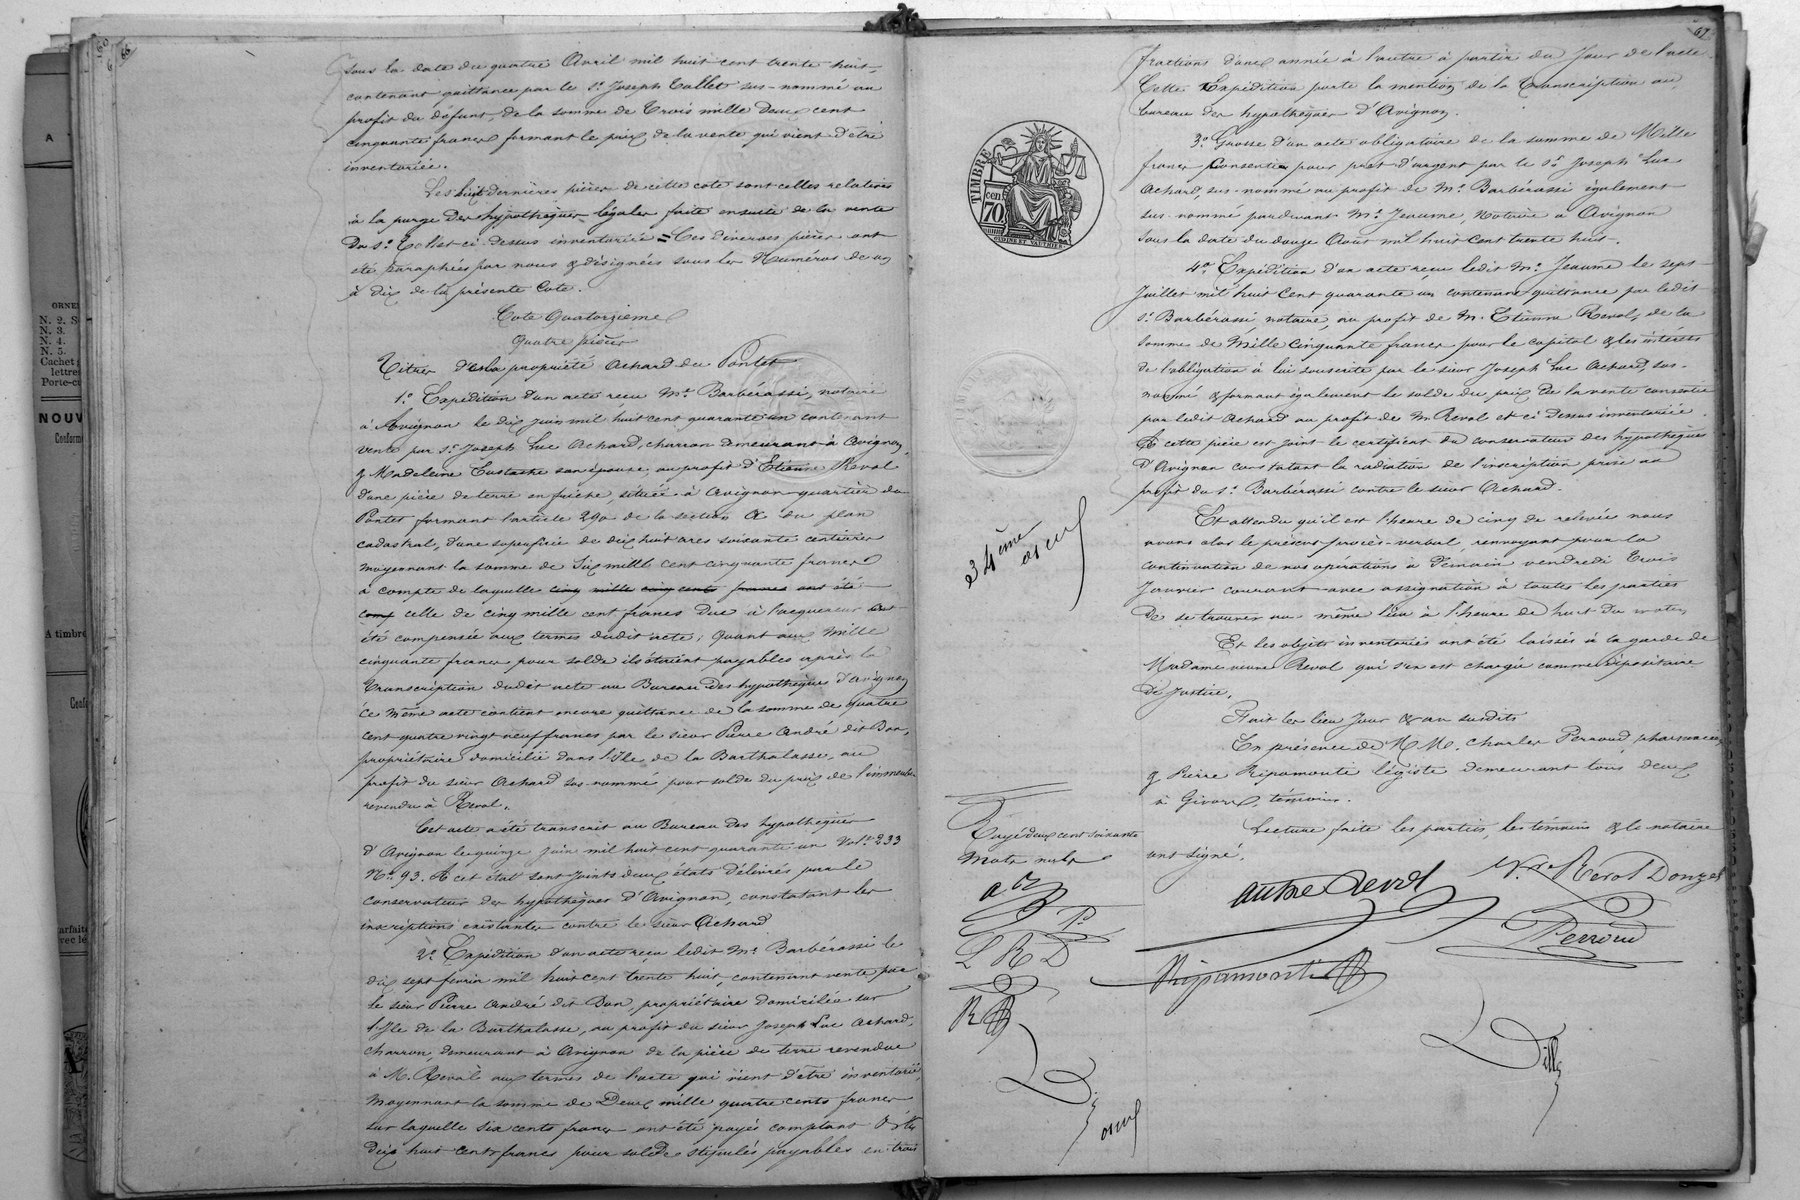 66
sous la date du quatre Avril mil huit cent trente huit,
contenant quittance par le Sr. Joseph Collet sus-nommé au
profit du défunt, de la somme de Trois mille deux cent
cinquante francs formant le prix de la vente qui vient d'être
inventoriée.
Les huit dernières pièces de cette cote sont celles relatives
à la purge des hypothèques légales faite ensuite de la vente
du Sr. Collet ci-dessus inventoriée = Ces diverses pièces ont
été paraphées par nous & désignées sous les Numéros de un
à dix de la présente Cote.
Cote Quatorzième
Quatre pièces
Titres de la propriété Achard du Pontet
1º. Expédition d'un acte reçu Me. Barbérassi, notaire
à Avignon le dix juin mil huit cent quarante un contenant
vente par Sr. Joseph Luc Achard, charron demeurant à Avignon
& Madeleine Eustache son épouse, au profit d'Etienne Reval
d'une pièce de terre en friche, située à Avignon quartier du
Pontet formant l'article 290 de la section & du plan
cadastral, d'une superficie de dix huit ares soixante centiares
moyennant la somme de Six mille cent cinquante francs
à compte de laquelle cinq mille cinq cents francs ont été
comp celle de cinq mille cent francs due à l'acquéreur a
été compensée aux termes dudit acte; Quant aux mille
cinquante francs pour solde ils étaient payables après la
transcription dudit acte au Bureau des hypothèques d'avignon
Ce même acte contient encore quittance de la somme de quatre
cent quatre vingt neuf francs par le sieur Pierre André dit Don,
propriétaire domicilié dans l'Isle de la Barthalasse, au
profit du sieur Achard sus nommé pour solde du prix de l'immeuble
revendu à Reval.
Cet acte a été transcrit au Bureau des hypothèques
d'Avignon le quinze juin mil huit cent quarante un Vol. 233
No. 93. A cet état sont joints deux états délivrés par le
conservateur des hypothèques d'Avignon, constatant les
inscriptions existantes contre le sieur Achard
2º. Expédition d'un acte reçu ledit Me. Barbérassi le
dix sept février mil huit cent trente huit, contenant vente par
le sieur Pierre André dit Don, propriétaire domicilié sur
l'Isle de la Barthalasse, au profit du sieur Joseph Luc Achard,
charron, demeurant à Avignon de la pièce de terre revendue
à M. Reval aux termes de l'acte qui vient d'être inventorié,
Moyennant la somme de Deux mille quatre cents francs
sur laquelle six cents francs ont été payés comptant & les
dix huit cents francs pour solde stipulés payables en trois
67
fractions d'une année à l'autre à partir du Jour de l'acte.
Cette Expédition porte la mention de la Transcription au
bureau des hypothèques d'Avignon.
3º. Grosse d'un acte obligatoire de la somme de Mille
francs consentie pour prêt d'argent par le Sr. Joseph Luc
Achard, sus-nommé au profit de Me. Barbérassi également
sus-nommé pardevant Me. Jeaume, Notaire à Avignon
sous la date du douze Août mil huit cent trente huit.
4º. Expédition d'un acte reçu ledit Me. Jeaume le sept
Juillet mil huit Cent quarante un contenant quittance par ledit
Sr. Barbérassi, notaire, au profit de M. Etienne Reval, de la
somme de Mille Cinquante francs pour le capital & les intérêts
de l'obligation à lui souscrite par le sieur Joseph Luc Achard, sus-
nommé, & formant également le solde du prix de la vente consentie
par ledit Achard au profit de M. Reval et ci-dessus inventoriée.
A cette pièce est joint le certificat du conservateur des hypothèques
d'Avignon constatant la radiation de l'inscription prise au
profit du Sr. Barbérassi contre le sieur Achard.
Et attendu qu'il est l'heure de cinq de relevée nous
avons clos le présent procès-verbal, renvoyant pour la
continuation de nos opérations à Demain vendredi Trois
Janvier courant avec assignation à toutes les parties
De se trouver au même lieu à l'heure de huit du matin
Et les objets inventoriés ont été laissés à la garde de
Madame veuve Reval qui s'en est chargée comme dépositaire
de Justice.
Fait les lieu jour & an susdits
En présence de MM. Charles Perroud, pharmacien
& Pierre Ripamonti légiste demeurant tous deux
à Givors, témoins.
Lecture faite les parties, les témoins & le notaire
ont signé.
TIMBRE
70 cen
34ème
Rayé deux cent soixante
mots nuls
P.
L R D
R
Ve. Reval Donzel
Perroud
Ripamonti